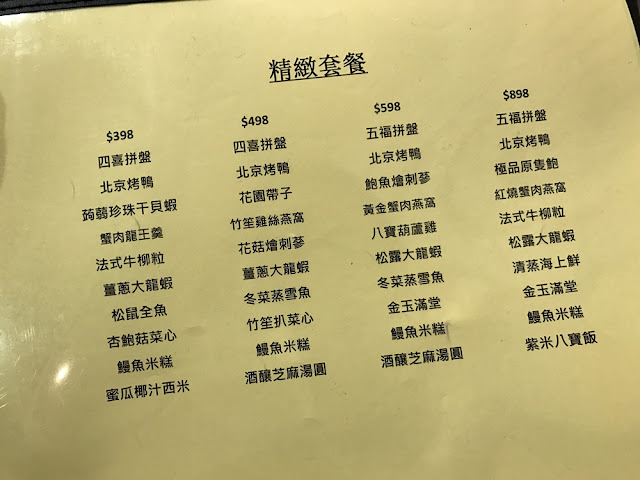 精緻套餐
$398
四喜拼盤
北京烤鴨
蒟蒻珍珠干貝蝦
蟹肉龍王羹
法式牛柳粒
薑蔥大龍蝦
松鼠全魚
杏鮑菇菜心
鰻魚米糕
蜜瓜椰汁西米
$498
四喜拼盤
北京烤鴨
花園帶子
竹笙雞絲燕窩
花菇燴刺蔘
薑蔥大龍蝦
冬菜蒸雪魚
竹笙扒菜心
鰻魚米糕
酒釀芝麻湯圓
$598
五福拼盤
北京烤鴨
鮑魚燴刺蔘
黃金蟹肉燕窩
八寶葫蘆雞
松露大龍蝦
冬菜蒸雪魚
金玉滿堂
鰻魚米糕
酒釀芝麻湯圓
$898
五福拼盤
北京烤鴨
極品原隻鮑
紅燒蟹肉燕窩
法式牛柳粒
松露大龍蝦
清蒸海上鮮
金玉滿堂
鰻魚米糕
紫米八寶飯